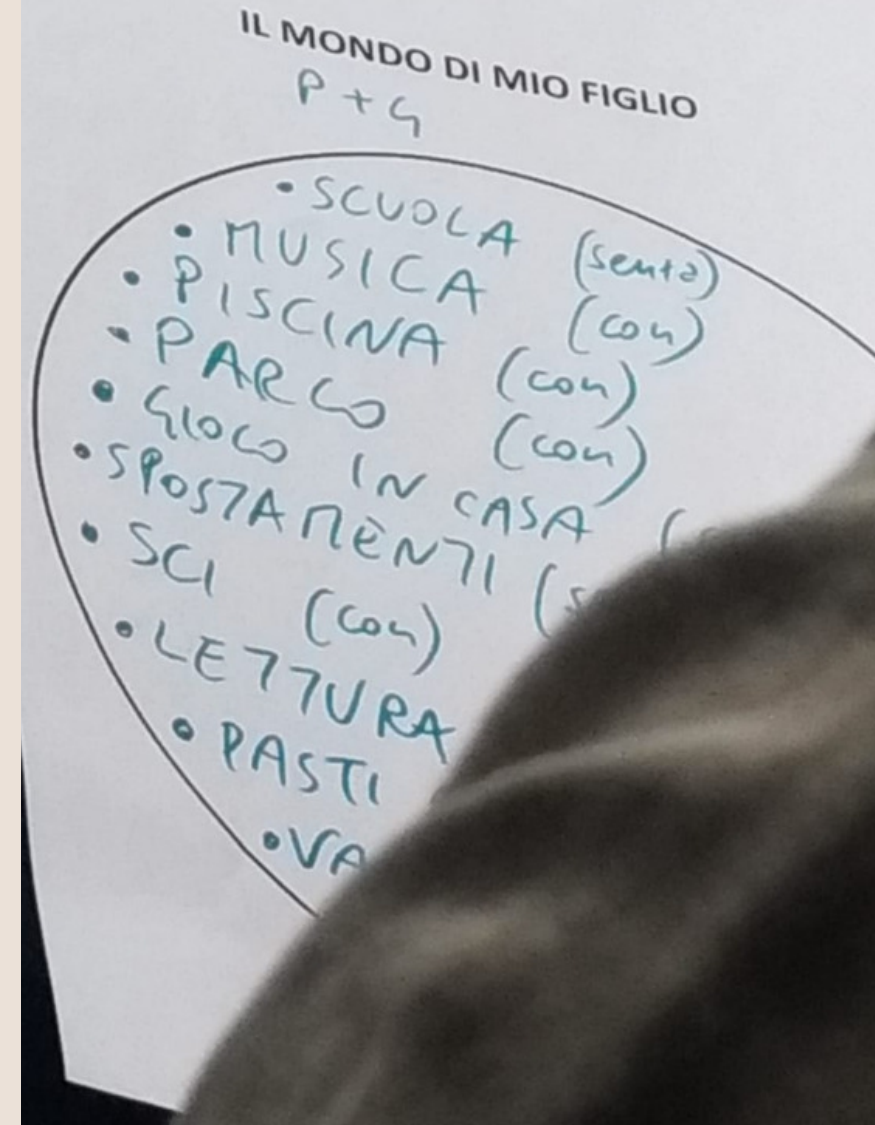 IL MONDO DI MIO FIGLIO
P + G
• SCUOLA (senza)
• MUSICA (con)
• PISCINA (con)
• PARCO (con)
• GIOCO IN CASA (
• SPOSTAMENTI (s
• SCI (con)
• LETTURA
• PASTI
• VA